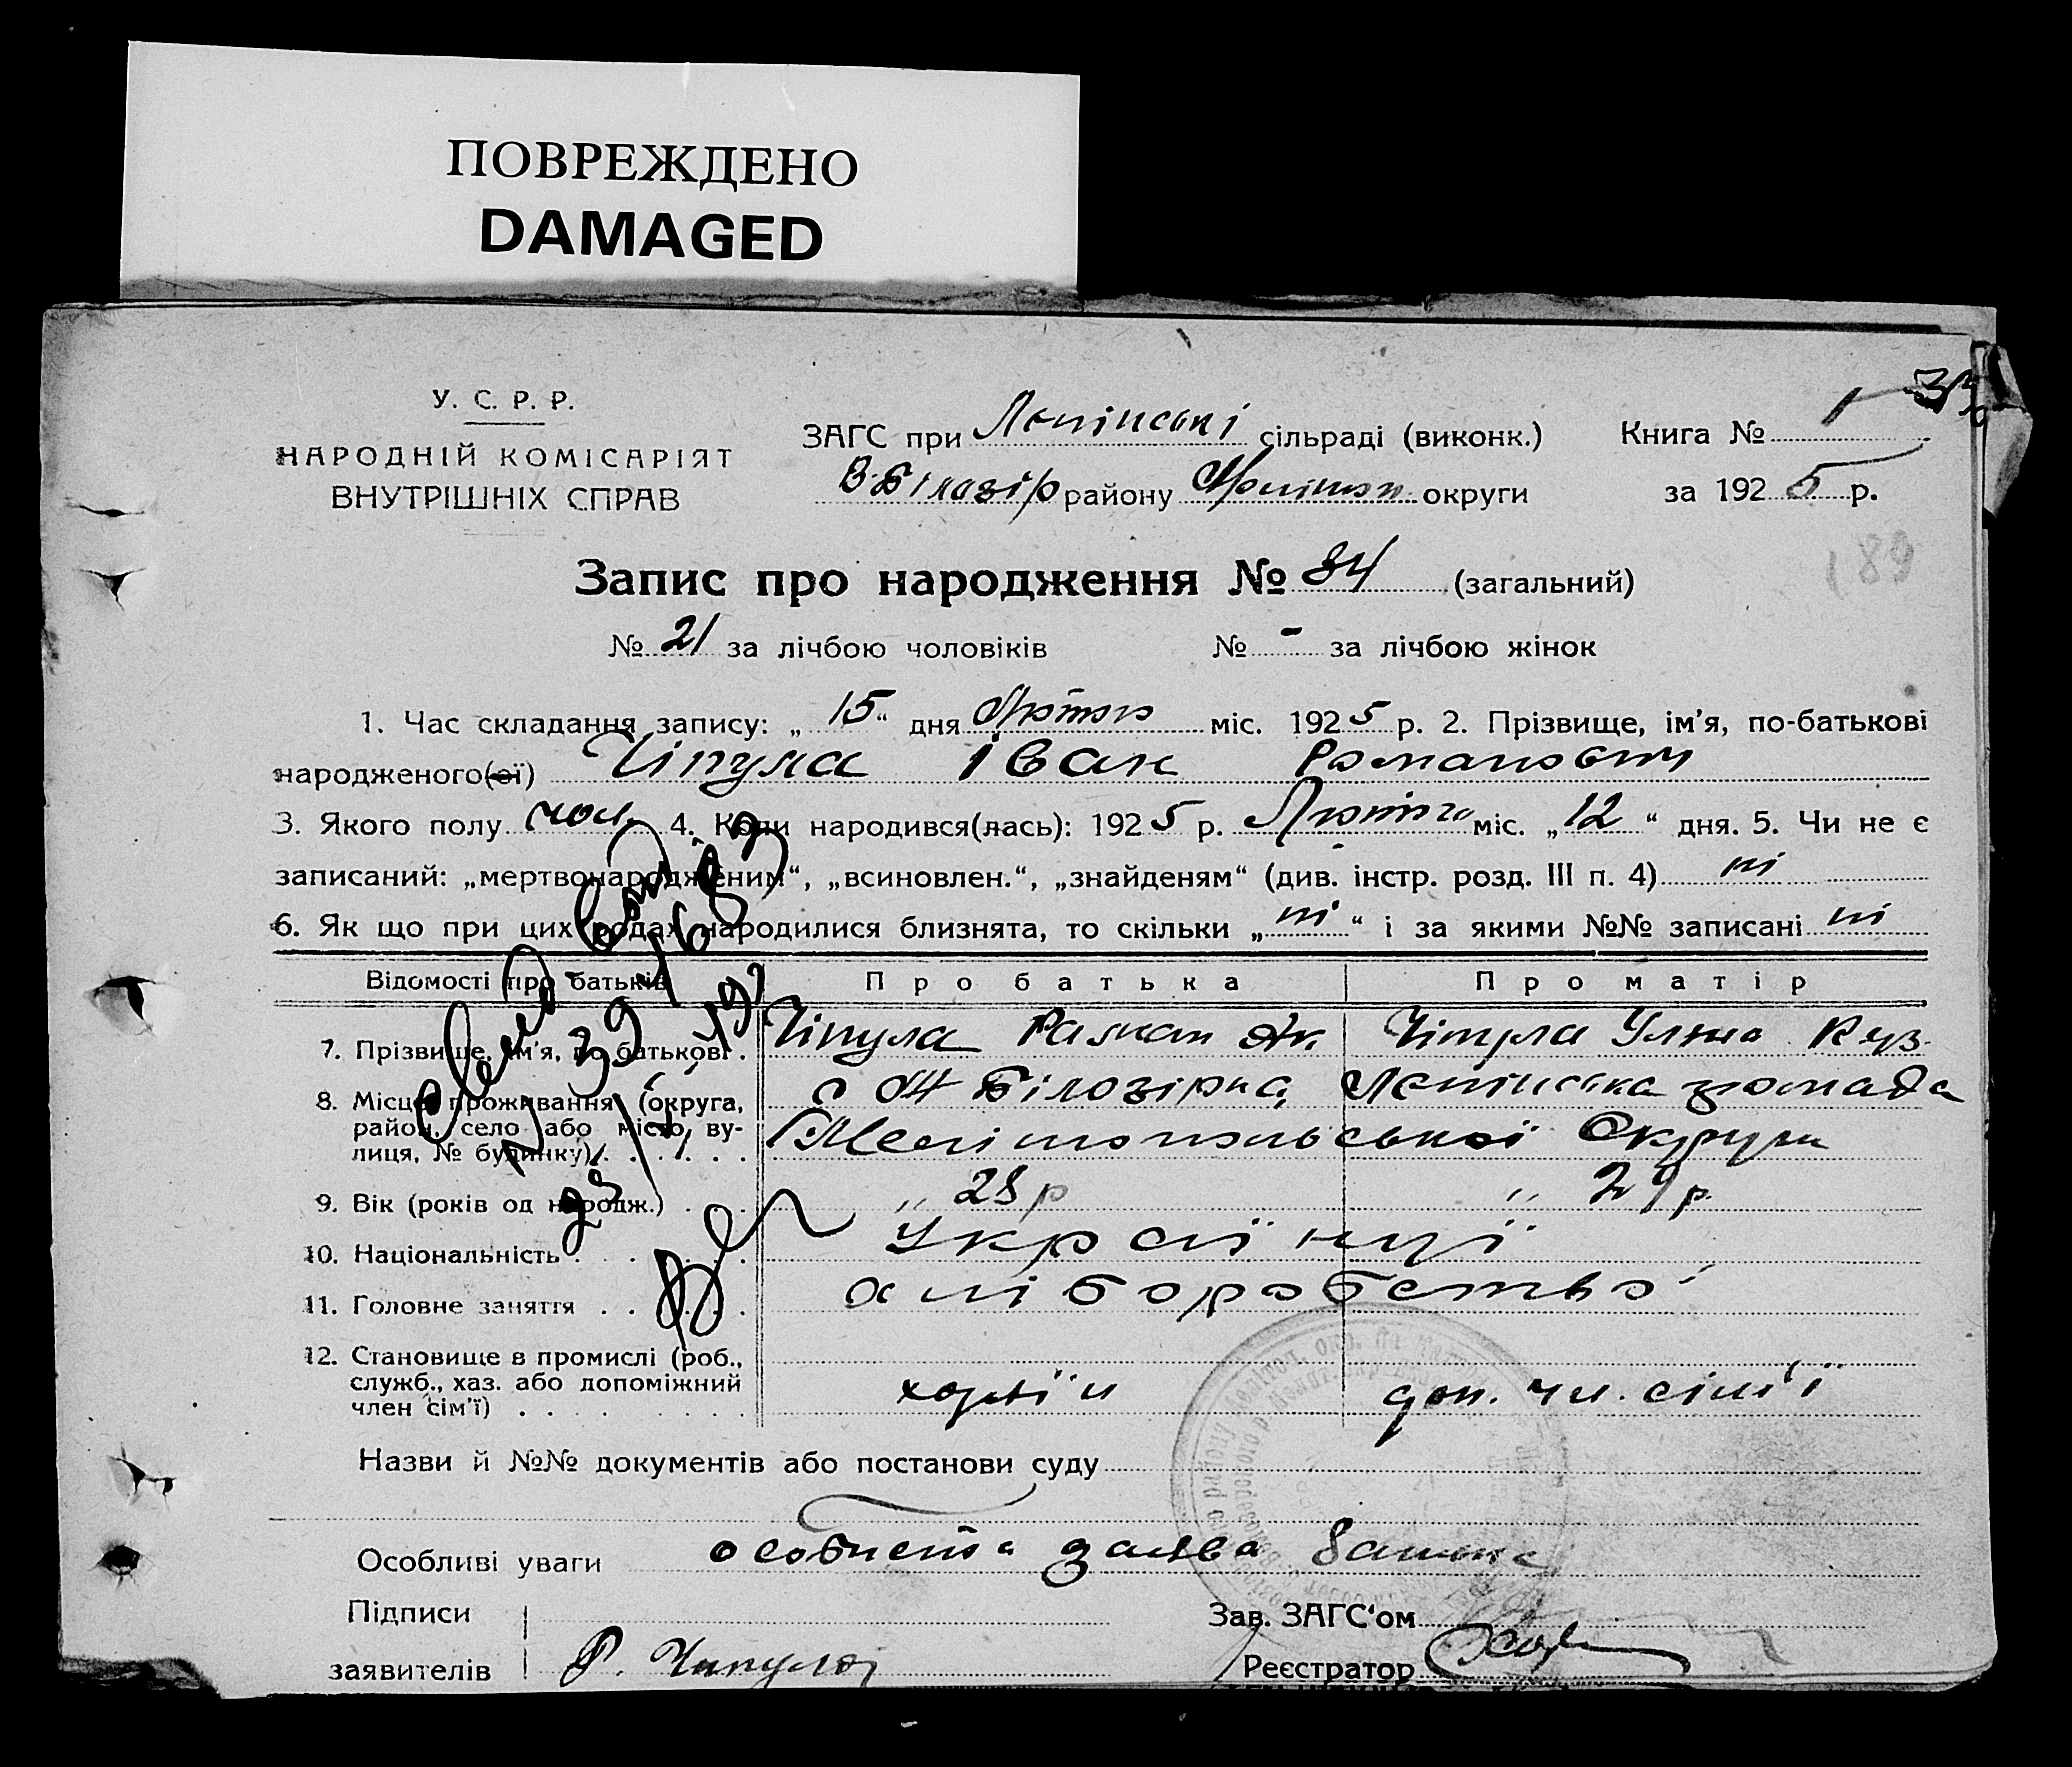 ПОВРЕЖДЕНО
DAMAGED
У. С. Р. Р.
НАРОДНІЙ КОМІСАРІЯТ
ВНУТРІШНІХ СПРАВ
ЗАГС при Ленінські сільраді (виконк.)
В-Білозір району округи
Книга № 1
за 1925 р.
189
Запис про народження № 84 (загальний)
№ 21 за лічбою чоловіків № - за лічбою жінок
1. Час складання запису: „15“ дня Лютого міс. 1925 р. 2. Прізвище, ім’я, по-батькові
народженого(ої) Чіпула Іван Романович
3. Якого полу чол. 4. Коли народився(лась): 1925 р. Лютого міс. „12“ дня. 5. Чи не є
записаний: „мертвонародженим“, „всиновлен.“, „знайденям“ (див. інстр. розд. III п. 4) ні
6. Як що при цих родах народилися близнята, то скільки „ні“ і за якими №№ записані ні
Відомості про батьків Про батька Про матір
7. Прізвище, ім’я, по батькові . Чіпула Роман Як Чіпула Уляна Куз.
8. Місце проживання (округа, район, село або місто, вулиця, № будинку) . . . . .
Білозірка, Ленінська громада
Мелітопольської Округи
9. Вік (років од народж.) . . . „ 28 р „ 29 р.
10. Національність . . . . . Українці
11. Головне заняття . . . . . хліборобство
12. Становище в промислі (роб., служб., хаз. або допоміжний член сім’ї) . . . . .
хазяїн доп. чл. сім'ї
Назви й №№ документів або постанови суду
Особливі уваги особиста заява
Підписи
заявителів Р. Чіпула
Зав. ЗАГС‘ом
Реєстратор